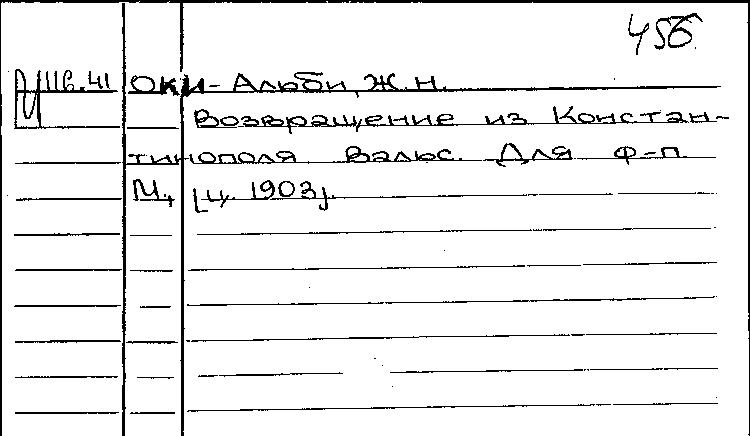 456
116.41 Оки-Альби, Ж.Н.
Возвращение из Констан-
тинополя. Вальс. Для ф-п.
М., [ц. 1903].